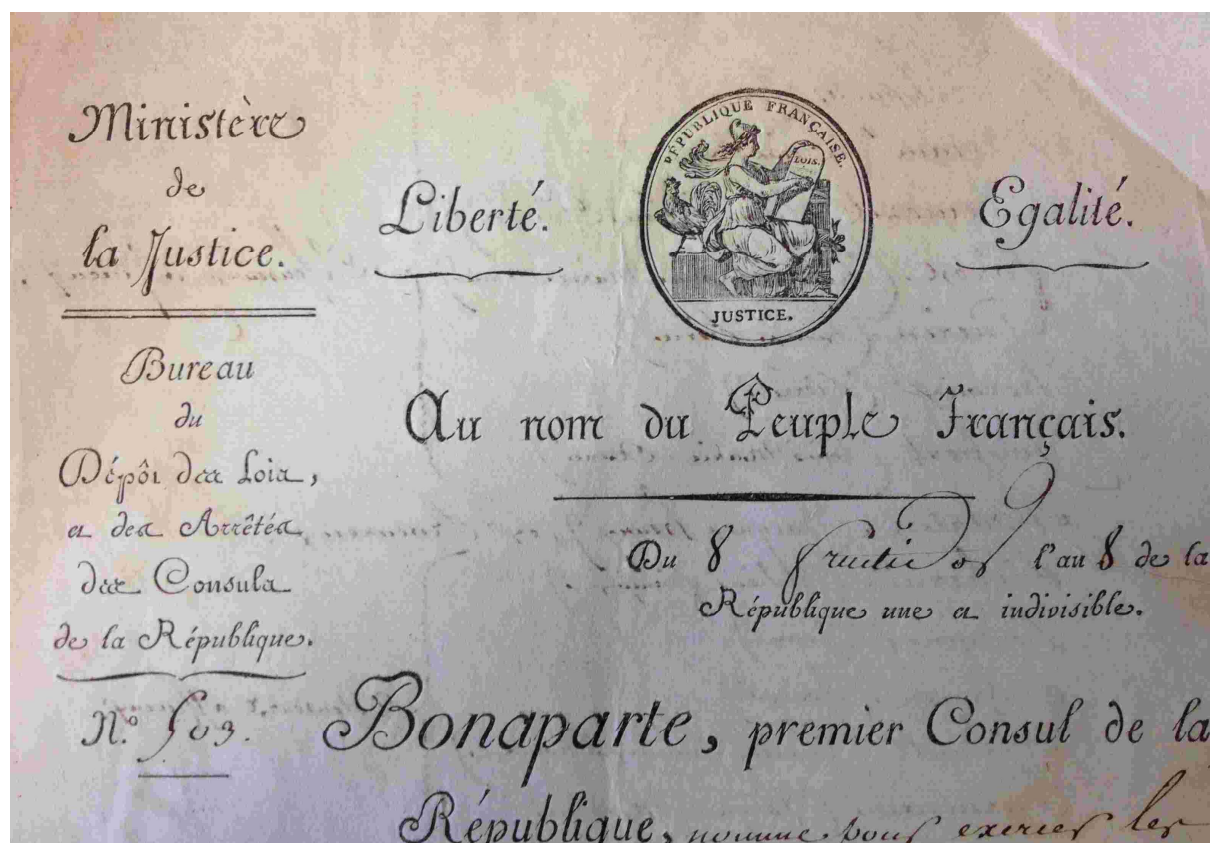 Ministère
de
la Justice.
Bureau
du
Dépôt des Lois,
et des Arrêtés
des Consuls
de la République.
N.º 503.
Liberté.
RÉPUBLIQUE FRANÇAISE.
LOIS.
JUSTICE.
Egalité.
Au nom du Peuple Français.
Du 8 fructidor l'an 8 de la
République une et indivisible.
Bonaparte, premier Consul de la
République, nomme pour exercer les